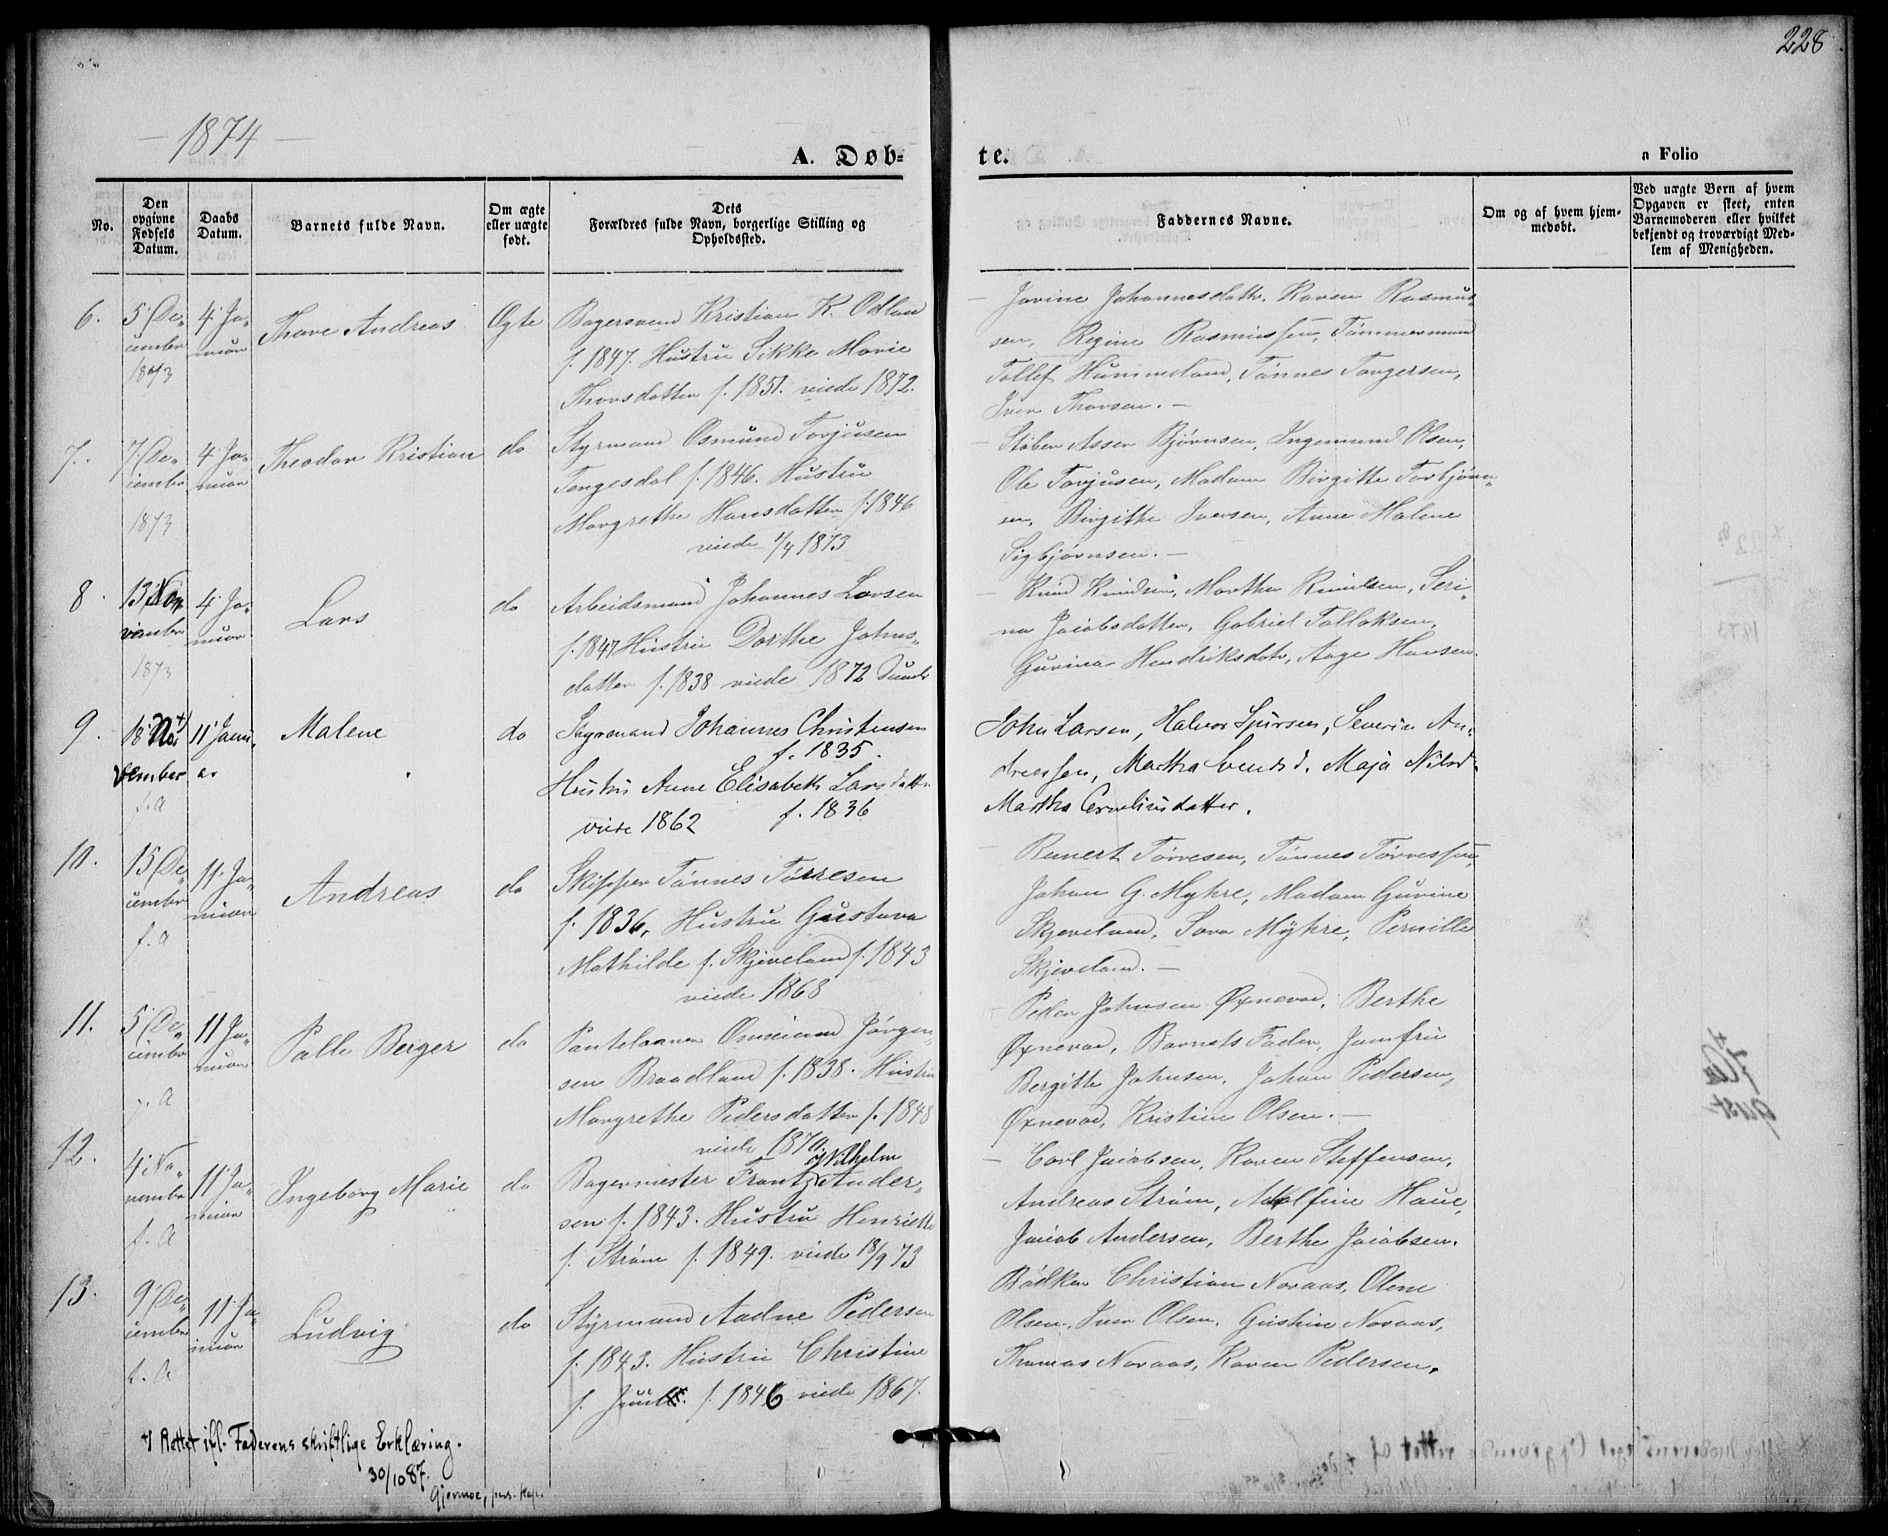 228
1874
A. Døb=
te.
a Folio
No.
Den opgivne Fødsels Datum.
Daabs Datum.
Barnets fulde Navn.
Om ægte eller uægte født.
Dets Forældres fulde Navn, borgerlige Stilling og Opholdssted.
Faddernes Navne.
Om og af hvem hjemmedøbt.
Ved uægte Børn af hvem Opgaven er skeet, enten Barnemoderen eller hvilket bekjendt og troværdigt Medlem af Menigheden.
6. 5 December 1873
4 Januar
Thore Andreas
Ægte
Bagersvend Kristian K. Odland
f. 1847. Hustru Sikke Marie
Thorsdatter f. 1851. viede 1872.
Jorine Johannesdatr. Karen Rasmus-
sen, Regine Rasmussen, Tømmermand
Tollef Hummeland, Tønnes Tongersen,
Iver Thorsen. —
7. 7 December 1873
4 Januar
Theodor Kristian
do
Styrmand Osmund Torjusen
Tengesdal f. 1846. Hustru
Margrethe Hansdatter f. 1846
viede 1/4 1873
Støber Asser Bjørnsen, Ingemund Olsen,
Ole Torjusen, Madam Birgitte Torbjørn-
sen, Birgithe Iversen, Anne Malene
Sigbjørnsen. —
8. 13 November 1873
4 Januar
Lars
do
Arbeidsmand Johannes Larsen
f. 1847 Hustru Dorthe Johns-
datter f. 1838 viede 1872 Sunde
Knud Knudsen, Martha Knudsen, Seri-
na Jacobsdatter, Gabriel Tollaksen,
Gurina Hendriksdatr, Aage Hansen.
9. 18 November f. A
11 Januar
Malene
do
Styrmand Johannes Christensen
f. 1835.
Hustru Anne Elisabeth Larsdatter
viede 1862 f. 1836
John Larsen, Halvor Spursen, Severin An-
dreassen, Martha Svendsd. Maja Nilsd.
Martha Corneliusdatter.
10. 15 December f. A
11 Januar
Andreas
do
Skipper Tønnes Tørresen
f. 1836, Hustru Gustava
Mathilde f. Skjeveland f. 1843
viede 1868
Reinert Tørresen, Tønnes Tørressen,
Johan G. Myhre, Madam Gurine
Skjeveland, Sara Myhre, Pernille
Skjeveland. —
11. 5 December f. A
11 Januar
Palle Berger
do
Pantelaaner Omund Jørgen-
sen Braadland f. 1838. Hustru
Margrethe Pedersdatter f. 1848
viede 1870.
Peder Johnsen Øxnevad, Berthe
Øxnevad, Barnets Fader, Jomfru
Bergitte Johnsen, Johan Pedersen,
Øxnevad, Kristine Olsen. —
12. 4 November f. A
11 Januar
Ingeborg Marie
do
Bagermester Frantz Vilhelm Ander-
sen f. 1843. Hustru Henriette
f. Strøm f. 1849. viede 18/9 73
Carl Jacobsen, Karen Steffensen,
Andreas Strøm, Adolfine Haue,
Jacob Andersen, Berthe Jacobsen.
13. 9 December f. A
11 Januar
Ludvig
do
Styrmand Aadne Pedersen
f. 1843. Hustru Christine
f. Juul. f. 1846 viede 1867.
Bødker Christian Noraas, Olene
Olsen, Iver Olsen, Gustine Noraas,
Thomas Noraas, Karen Pedersen.
+) Rettet ifl. Faderens skriftlige Erklæring.
30/10 87.
Gjermoe, pers. kap.